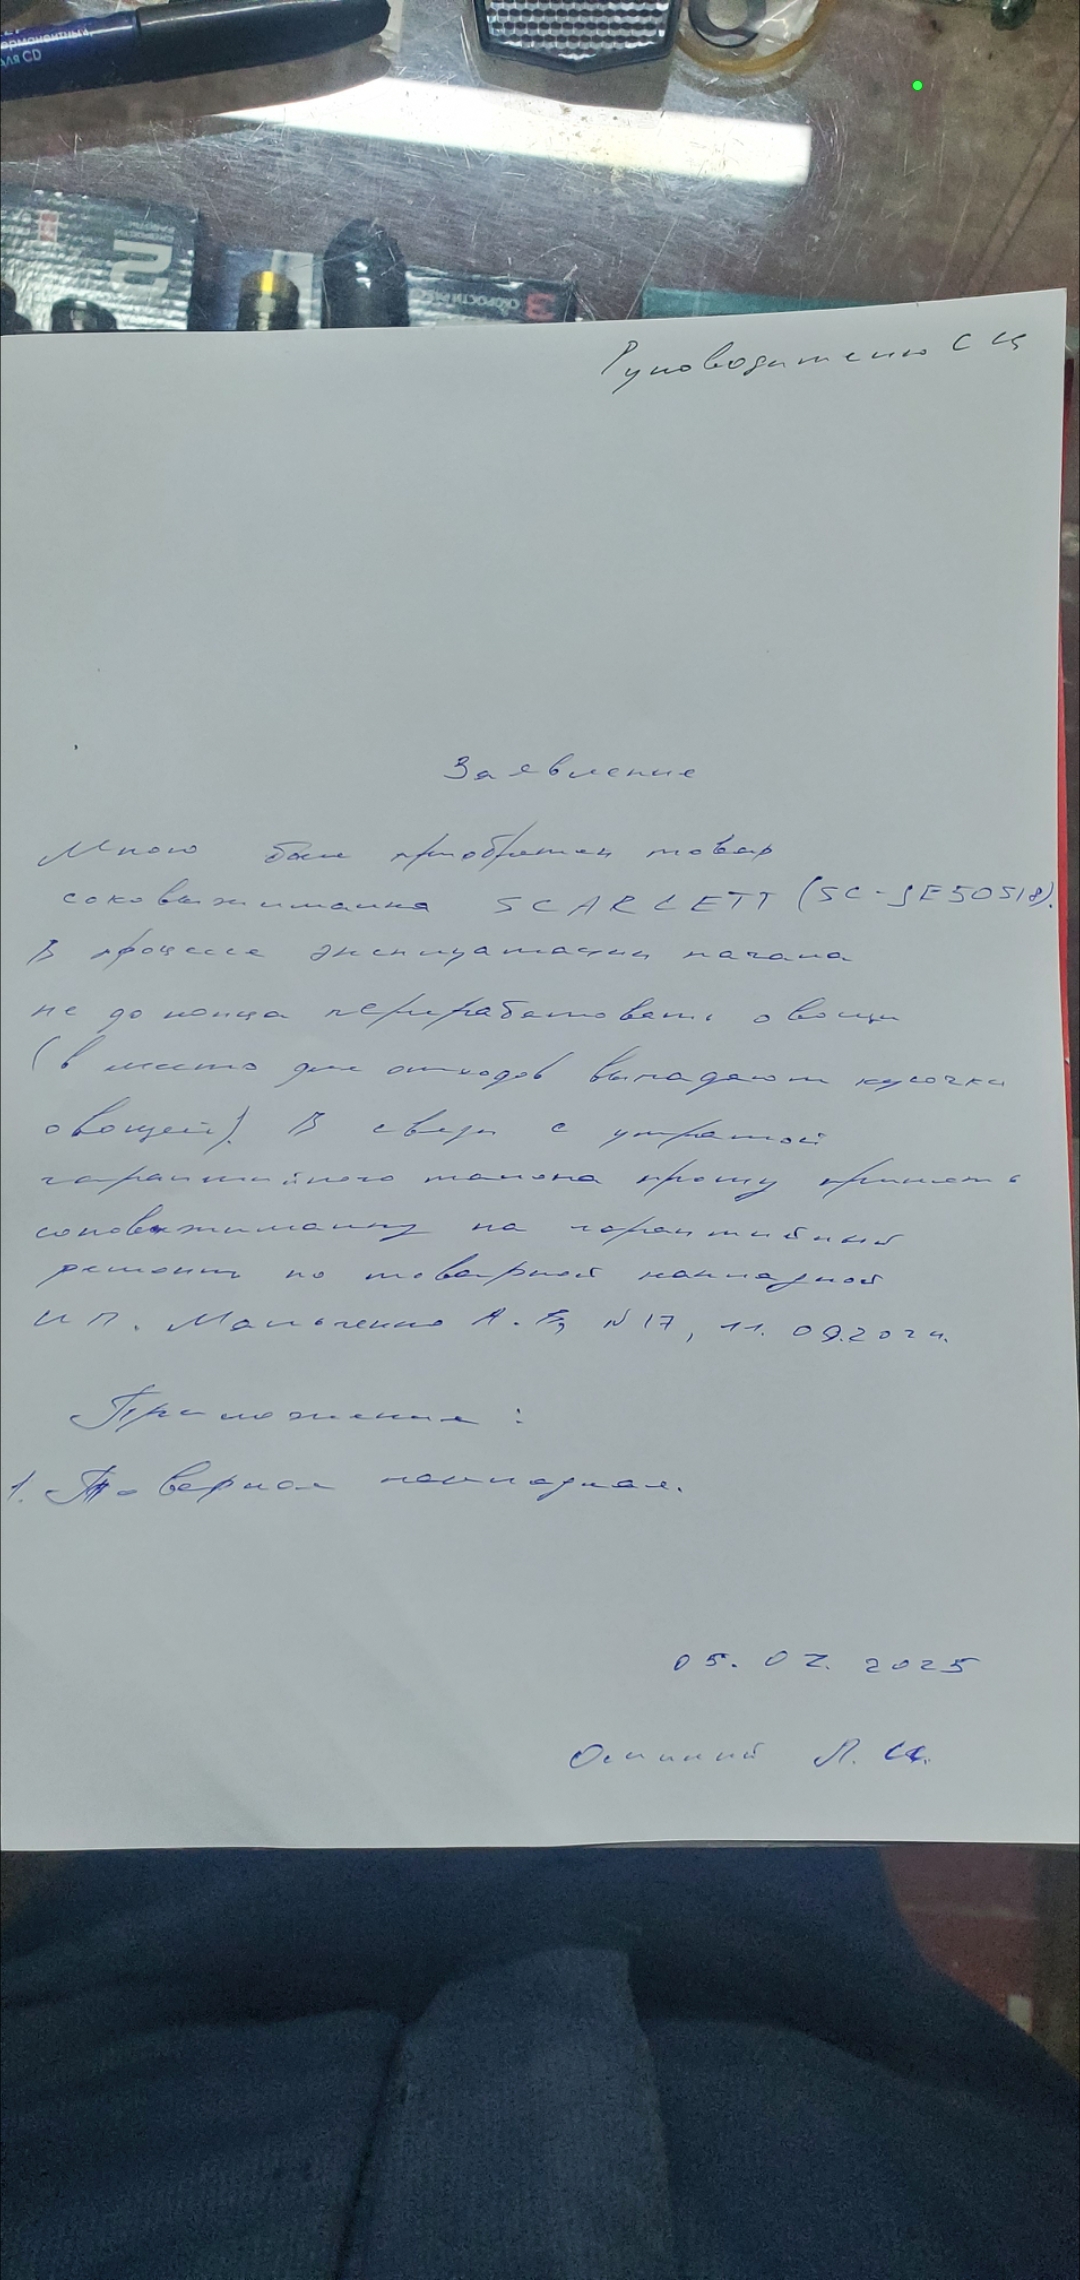 перманентный,
для CD
2
СКОРОСТИ 3
Руководителю СЦ
Заявление
Мною был приобретен товар
соковыжималка SCARLETT (SC-JE50S18).
В процессе эксплуатации начала
не до конца перерабатовать овощи
(в место для отходов выпадают кусочки
овощей). В связи с утратой
гарантийного талона прошу принять
соковыжималку на гарантийный
ремонт по товарной накладной
ИП. А. В, №17, 11.09.2024.
Приложения:
1. Товарная накладная.
05.02.2025
Л. И.